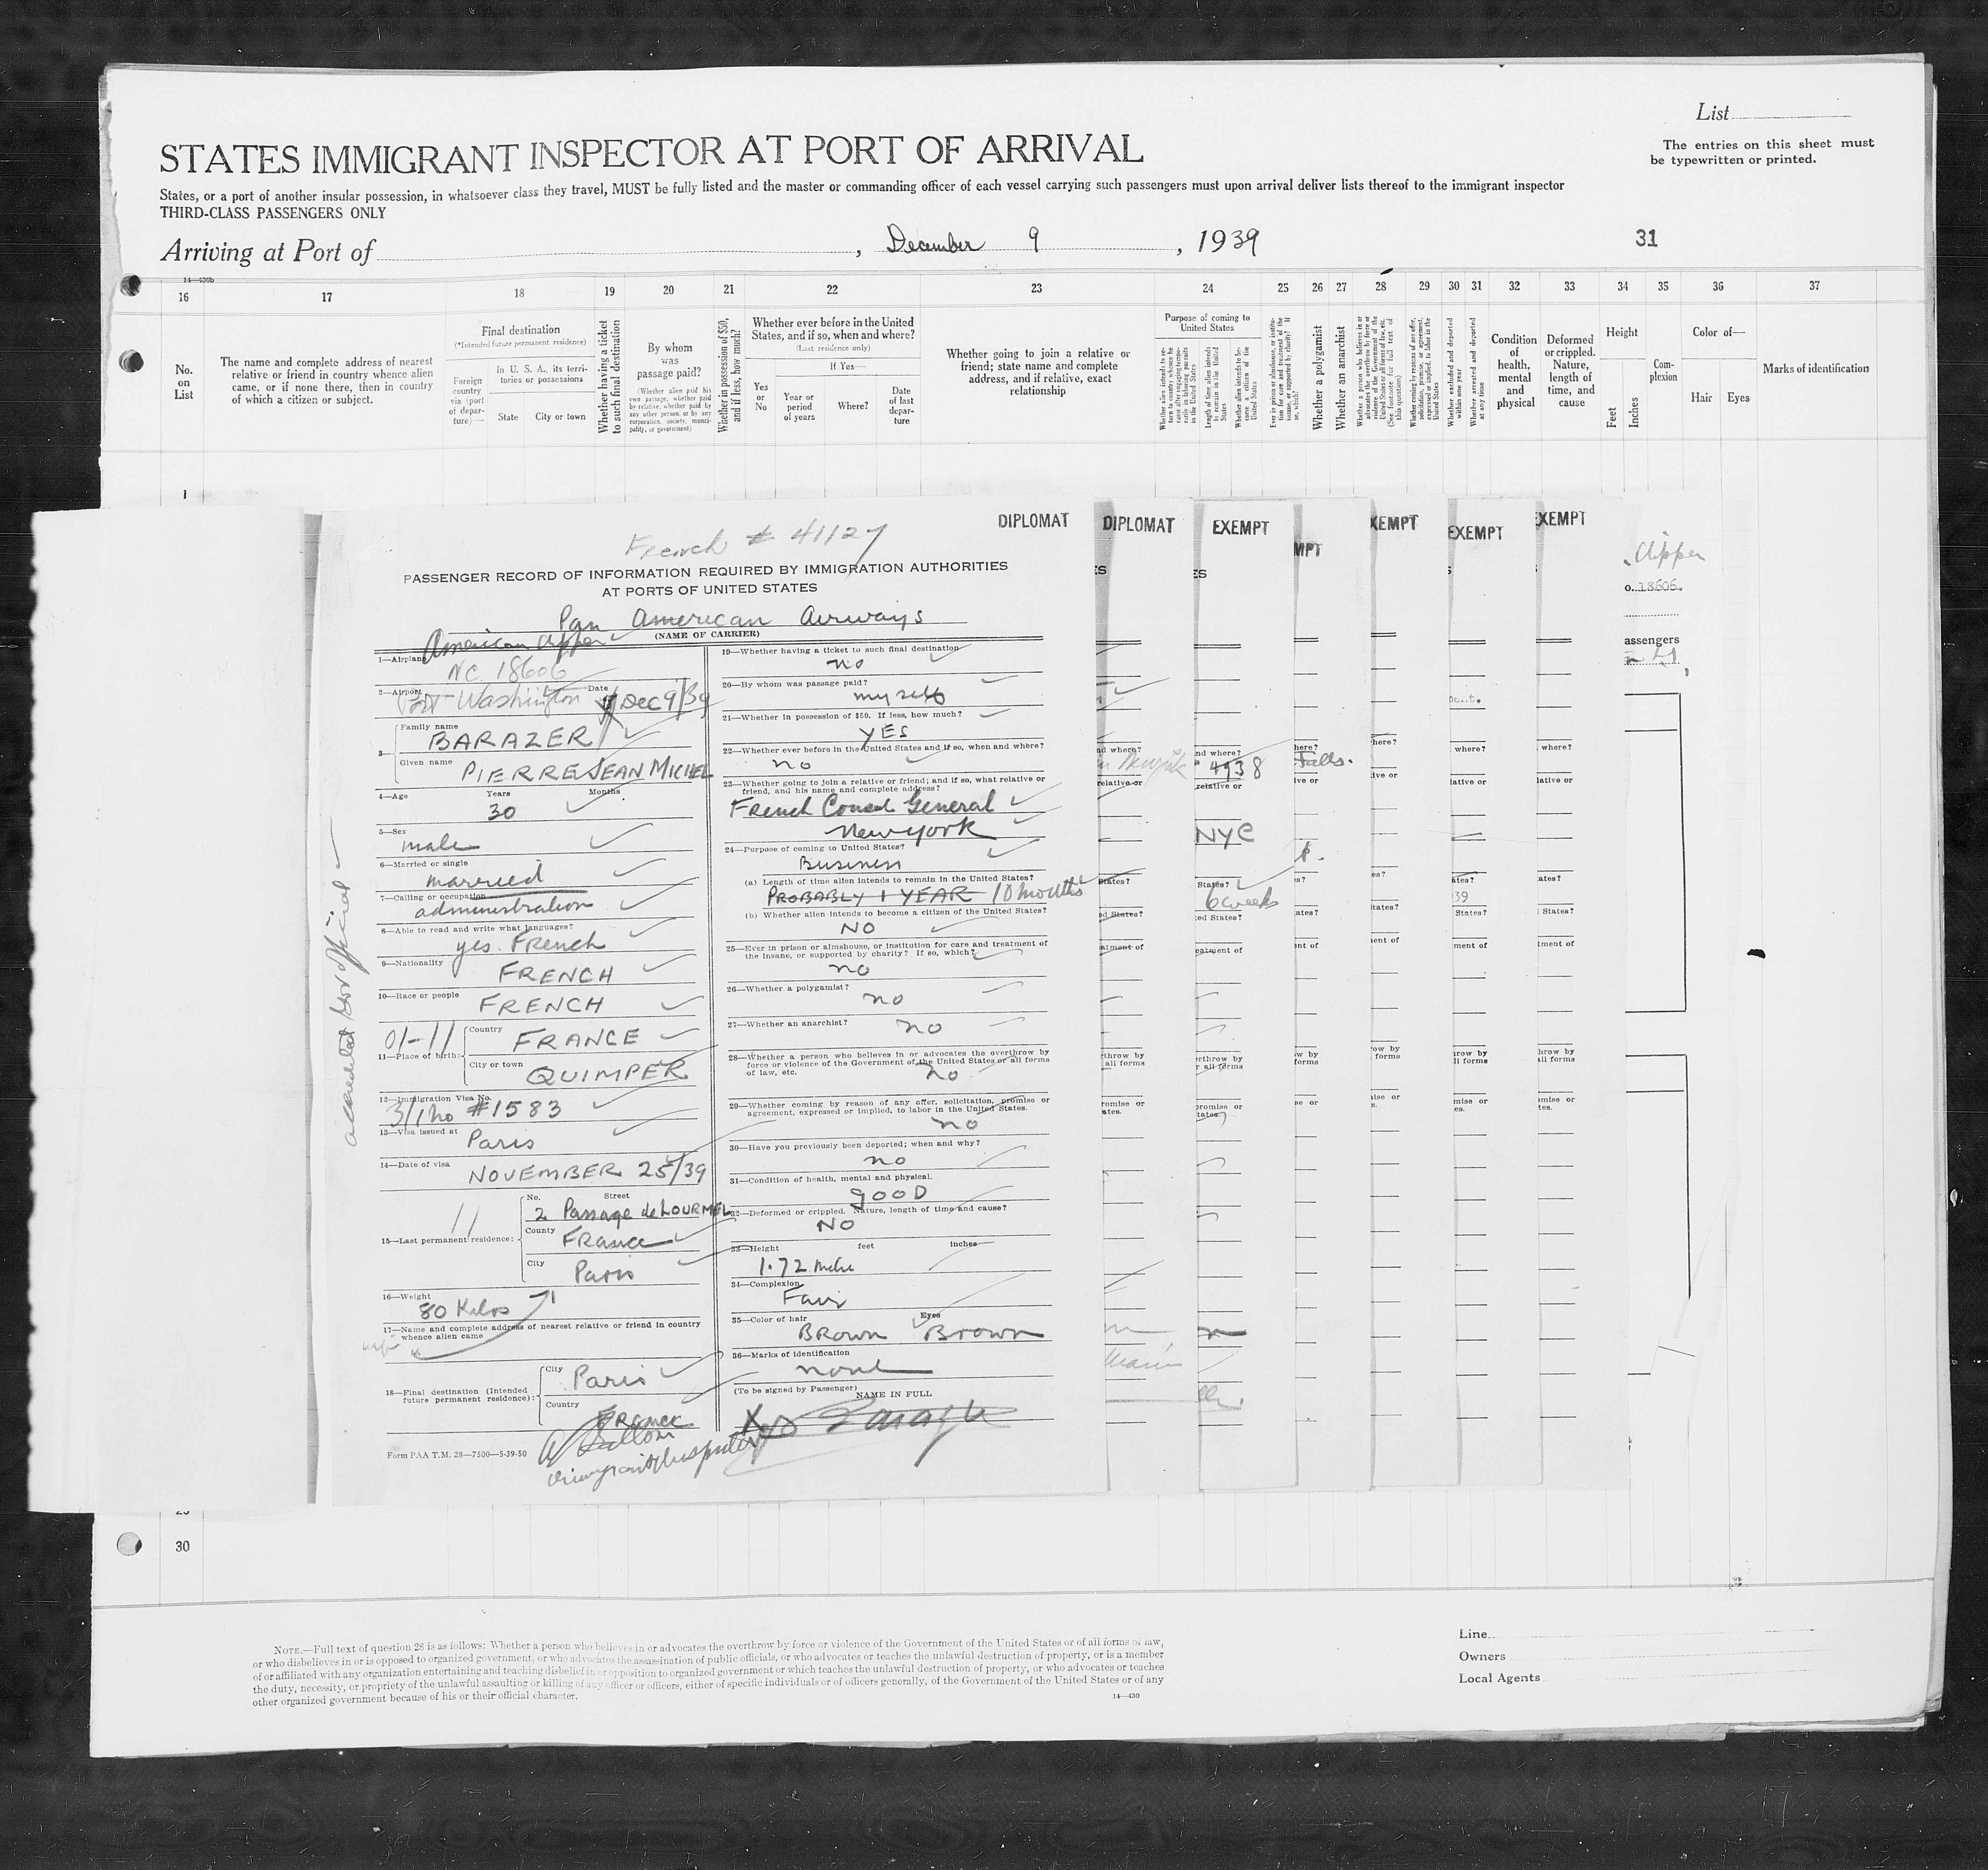 List
STATES IMMIGRANT INSPECTOR AT PORT OF ARRIVAL
The entries on this sheet must
be typewritten or printed.
States, or a port of another insular possession, in whatsoever class they travel, MUST be fully listed and the master or commanding officer of each vessel carrying such passengers must upon arrival deliver lists thereof to the immigrant inspector
THIRD-CLASS PASSENGERS ONLY
Arriving at Port of , December 9 , 1939
31
16 17 18 19 20 21 22 23 24 25 26 27 28 29 30 31 32 33 34 35 36 37
No.
on
List
The name and complete address of nearest
relative or friend in country whence alien
came, or if none there, then in country
of which a citizen or subject.
Final destination
(*Intended future permanent residence)
Foreign
country
via (port
of depar-
ture)—
In U. S. A., its terri-
tories or possessions
State City or town
Whether having a ticket
to such final destination
By whom
was
passage paid?
(Whether alien paid his
own passage, whether paid
by relative, whether paid by
any other person, or by any
corporation, society, munici-
pality, or government)
Whether in possession of $50,
and if less, how much?
Whether ever before in the United
States, and if so, when and where?
(Last residence only)
If Yes—
Yes
or
No
Year or
period
of years
Where?
Date
of last
depar-
ture
Whether going to join a relative or
friend; state name and complete
address, and if relative, exact
relationship
Purpose of coming to
United States
Length of time alien intends
to remain in the United
States
Whether alien intends to be-
come a citizen of the
United States
Whether a polygamist
Whether an anarchist
Whether excluded and deported
within one year
Whether arrested and deported
at any time
Condition
of
health,
mental
and
physical
Deformed
or crippled.
Nature,
length of
time, and
cause
Height
Feet
Inches
Com-
plexion
Color of—
Hair Eyes
Marks of identification
1
DIPLOMAT
DIPLOMAT
EXEMPT
MPT
XEMPT
EXEMPT
EXEMPT
Clipper
o. 18606.
assengers
French # 41127
PASSENGER RECORD OF INFORMATION REQUIRED BY IMMIGRATION AUTHORITIES
AT PORTS OF UNITED STATES
Pan American Airways
(NAME OF CARRIER)
American Clipper
1—Airplane
NC. 18606
2—Airport Port Washington Date Dec 9/39
3— Family name
BARAZER
Given name PIERRE JEAN MICHEL
4—Age Years Months
30
5—Sex
male
6—Married or single
married
7—Calling or occupation
administration
8—Able to read and write what languages?
yes. French
9—Nationality
FRENCH
10—Race or people
FRENCH
01-11
11—Place of birth: Country
FRANCE
City or town
QUIMPER
12—Immigration Visa No.
3/1 no #1583
13—Visa issued at Paris
14—Date of visa
NOVEMBER 25/39
No. Street
2 Passage de LOURMEL
15—Last permanent residence: County
France
City
Paris
16—Weight
80 Kilos
17—Name and complete address of nearest relative or friend in country
whence alien came
18—Final destination (Intended
future permanent residence): City
Paris
Country
France
Form PAA T.M. 28—7500—5-39-50
immigrant Inspector
19—Whether having a ticket to such final destination
no
20—By whom was passage paid?
myself
21—Whether in possession of $50. If less, how much?
YES
22—Whether ever before in the United States and if so, when and where?
no
23—Whether going to join a relative or friend; and if so, what relative or
friend, and his name and complete address?
French Consul General
New york
24—Purpose of coming to United States?
Business
(a) Length of time alien intends to remain in the United States?
PROBABLY 1 YEAR 10 months
(b) Whether alien intends to become a citizen of the United States?
NO
25—Ever in prison or almshouse, or institution for care and treatment of
the insane, or supported by charity? If so, which?
no
26—Whether a polygamist?
no
27—Whether an anarchist?
no
28—Whether a person who believes in or advocates the overthrow by
force or violence of the Government of the United States or all forms
of law, etc.
no
29—Whether coming by reason of any offer, solicitation, promise or
agreement, expressed or implied, to labor in the United States.
no
30—Have you previously been deported; when and why?
no
31—Condition of health, mental and physical.
gooD
32—Deformed or crippled. Nature, length of time and cause?
NO
33—Height feet inches
1.72 metre
34—Complexion
Fair
35—Color of hair Eyes
BROWN Brown
36—Marks of identification
none
(To be signed by Passenger)
NAME IN FULL
1938
Falls.
NYC
6 weeks
30
NOTE.—Full text of question 28 is as follows: Whether a person who believes in or advocates the overthrow by force or violence of the Government of the United States or of all forms of law,
or who disbelieves in or is opposed to organized government, or who advocates the assassination of public officials, or who advocates or teaches the unlawful destruction of property, or is a member
of or affiliated with any organization entertaining and teaching disbelief in or opposition to organized government or which teaches the unlawful destruction of property, or who advocates or teaches
the duty, necessity, or propriety of the unlawful assaulting or killing of any officer or officers, either of specific individuals or of officers generally, of the Government of the United States or of any
other organized government because of his or their official character.
14—430
Line
Owners
Local Agents